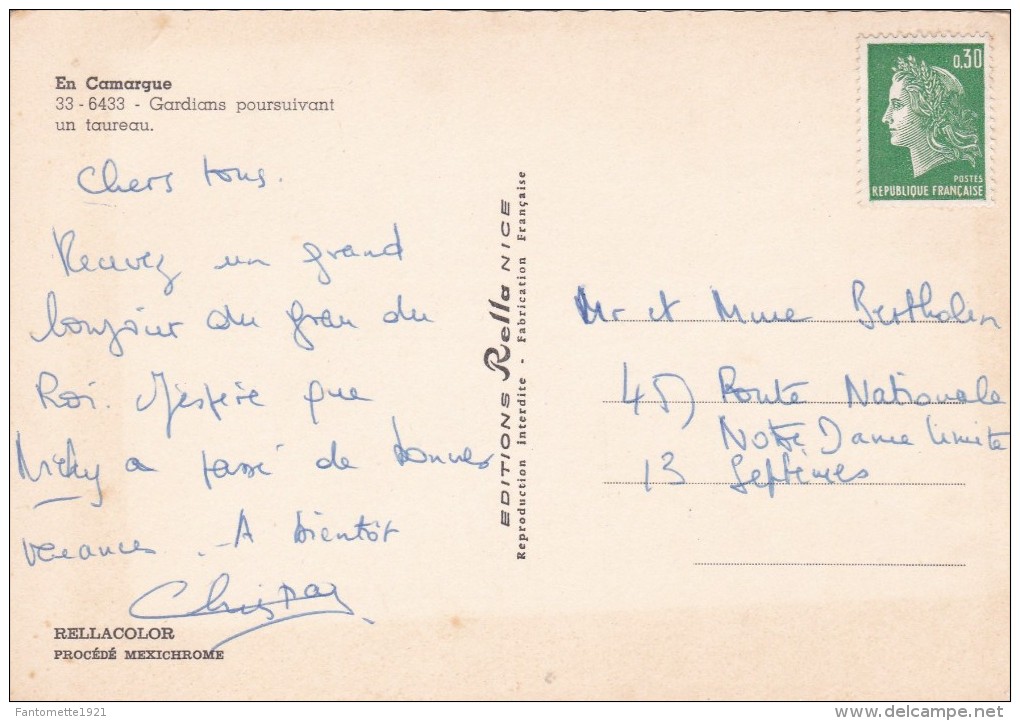 En Camargue
33-6433 - Gardians poursuivant
un taureau.
0,30
POSTES
REPUBLIQUE FRANÇAISE
Chers tous.
Recevez un grand
bonjour du grau du
Roi. J'espère que
Nicky a passé de bonnes
vacances. - A bientôt
EDITIONS Rella NICE
Reproduction Interdite - Fabrication Française
Mr et Mme Bertholin
Route Nationale
Notre Dame limite
13 Septèmes
RELLACOLOR
PROCÉDÉ MEXICHROME
Fantomette1921
delcampe.net